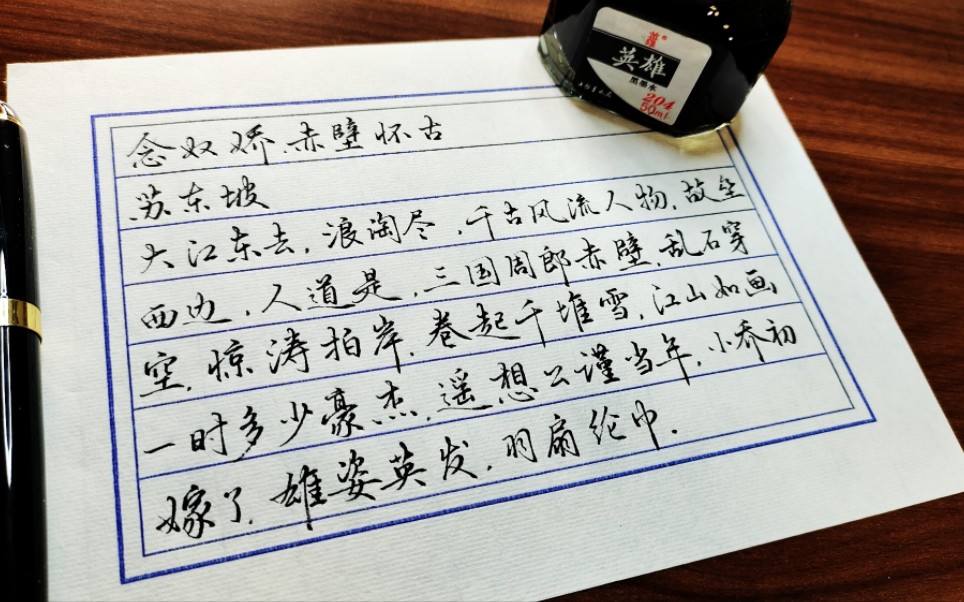 念奴娇赤壁怀古
苏东坡
大江东去,浪淘尽,千古风流人物,故垒
西边,人道是,三国周郎赤壁,乱石穿
空,惊涛拍岸,卷起千堆雪,江山如画
一时多少豪杰,遥想公谨当年,小乔初
嫁了,雄姿英发,羽扇纶巾.
英雄
黑墨水
204
60ml